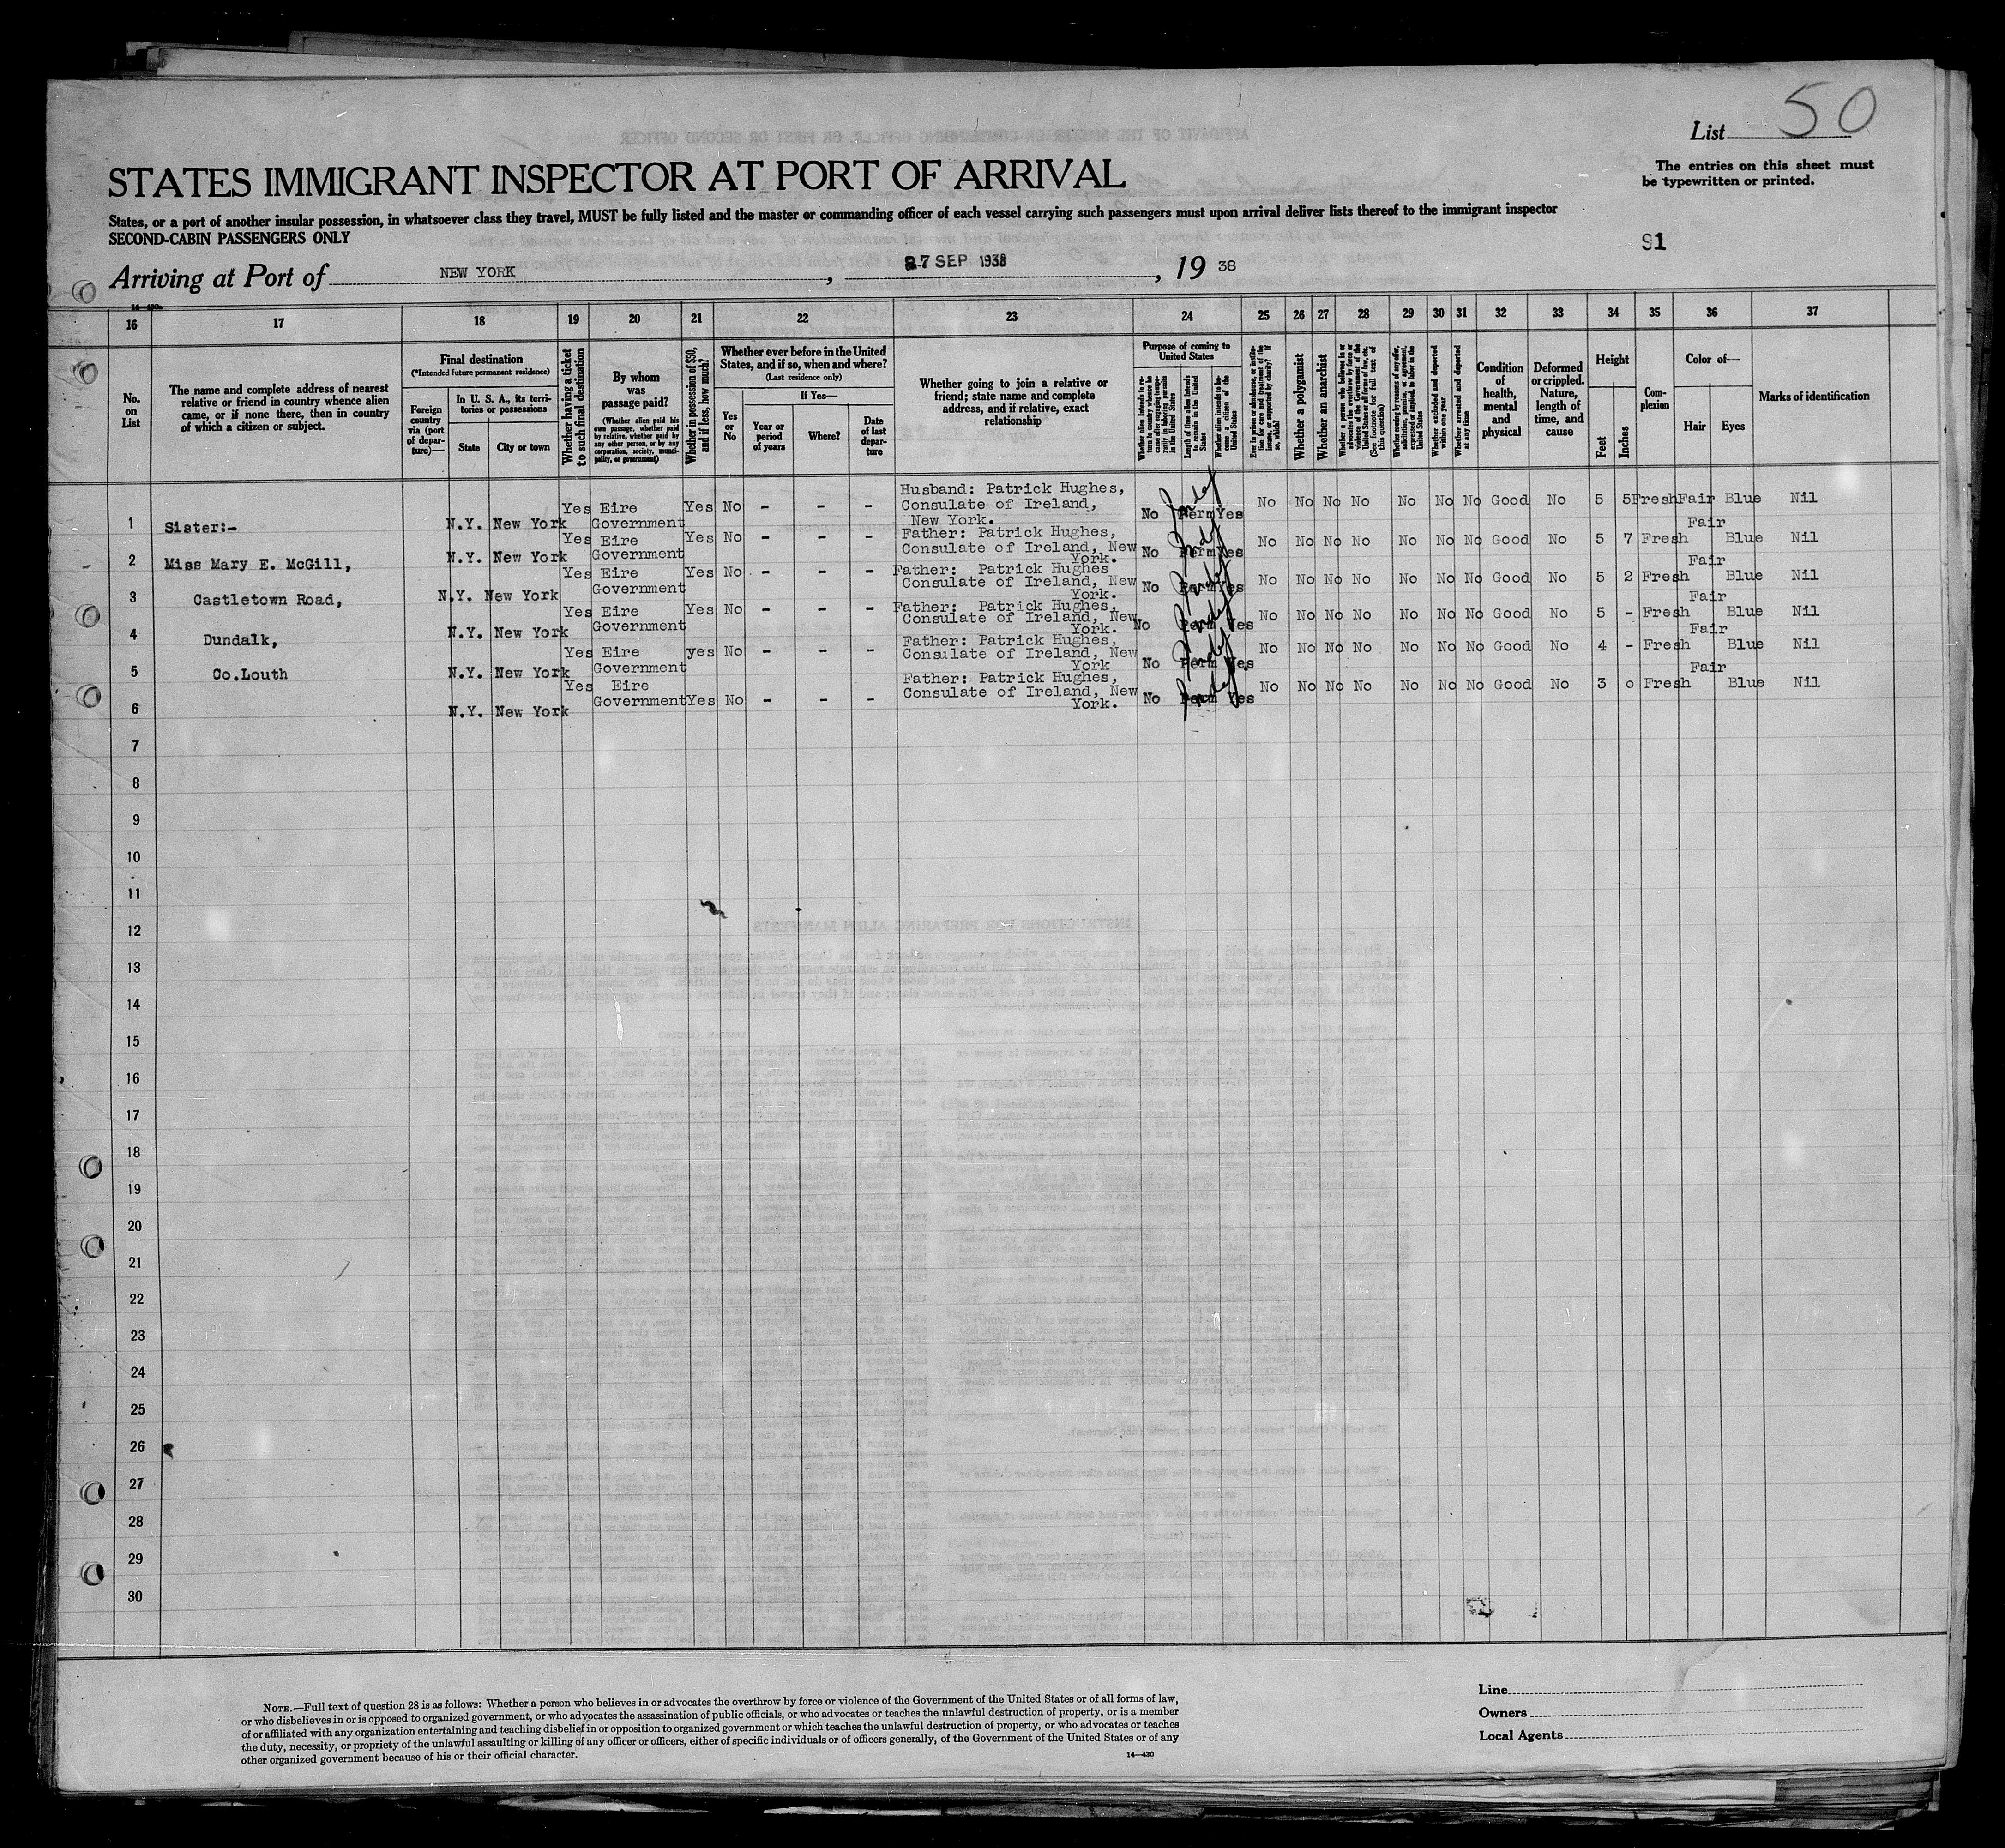 List 50
STATES IMMIGRANT INSPECTOR AT PORT OF ARRIVAL
The entries on this sheet must
be typewritten or printed.
States, or a port of another insular possession, in whatsoever class they travel, MUST be fully listed and the master or commanding officer of each vessel carrying such passengers must upon arrival deliver lists thereof to the immigrant inspector
SECOND-CABIN PASSENGERS ONLY
91
Arriving at Port of NEW YORK, 27 SEP 1938, 19 38
16 17 18 19 20 21 22 23 24 25 26 27 28 29 30 31 32 33 34 35 36 37
No. on List
The name and complete address of nearest
relative or friend in country whence alien
came, or if none there, then in country
of which a citizen or subject.
Final destination
(*Intended future permanent residence)
Foreign country via (port of departure)—
In U. S. A., its territories or possessions
State
City or town
Whether having a ticket to such final destination
By whom was passage paid?
(Whether alien paid his own passage, whether paid by relative, whether paid by any other person, or by any corporation, society, municipality, or government)
Whether in possession of $50, and if less, how much?
Whether ever before in the United States, and if so, when and where?
(Last residence only)
Yes or No
If Yes—
Year or period of years
Where?
Date of last departure
Whether going to join a relative or
friend; state name and complete
address, and if relative, exact
relationship
Purpose of coming to United States
Length of time alien intends to remain in the United States
Whether alien intends to become a citizen of the United States
Whether a polygamist
Whether an anarchist
Whether excluded and deported within one year
Whether arrested and deported at any time
Condition of health, mental and physical
Deformed or crippled. Nature, length of time, and cause
Height
Feet
Inches
Complexion
Color of—
Hair
Eyes
Marks of identification
1 Sister:- N.Y. New York Yes Eire Government Yes No - - - Husband: Patrick Hughes, Consulate of Ireland, New York. No Perm Yes No No No No No No No Good No 5 5 Fresh Fair Blue Nil
2 Miss Mary E. McGill, N.Y. New York Yes Eire Government Yes No - - - Father: Patrick Hughes, Consulate of Ireland, New York. No Perm Yes No No No No No No No Good No 5 7 Fresh Fair Blue Nil
3 Castletown Road, N.Y. New York Yes Eire Government Yes No - - - Father: Patrick Hughes Consulate of Ireland, New York. No Perm Yes No No No No No No No Good No 5 2 Fresh Fair Blue Nil
4 Dundalk, N.Y. New York Yes Eire Government Yes No - - - Father: Patrick Hughes, Consulate of Ireland, New York. No Perm Yes No No No No No No No Good No 5 - Fresh Fair Blue Nil
5 Co.Louth N.Y. New York Yes Eire Government yes No - - - Father: Patrick Hughes, Consulate of Ireland, New York No Perm Yes No No No No No No No Good No 4 - Fresh Fair Blue Nil
6 N.Y. New York Yes Eire Government Yes No - - - Father: Patrick Hughes, Consulate of Ireland, New York. No Perm Yes No No No No No No No Good No 3 0 Fresh Fair Blue Nil
7
8
9
10
11
12
13
14
15
16
17
18
19
20
21
22
23
24
25
26
27
28
29
30
NOTE.—Full text of question 28 is as follows: Whether a person who believes in or advocates the overthrow by force or violence of the Government of the United States or of all forms of law,
or who disbelieves in or is opposed to organized government, or who advocates the assassination of public officials, or who advocates or teaches the unlawful destruction of property, or is a member
of or affiliated with any organization entertaining and teaching disbelief in or opposition to organized government or which teaches the unlawful destruction of property, or who advocates or teaches
the duty, necessity, or propriety of the unlawful assaulting or killing of any officer or officers, either of specific individuals or of officers generally, of the Government of the United States or of any
other organized government because of his or their official character.
14—430
Line
Owners
Local Agents